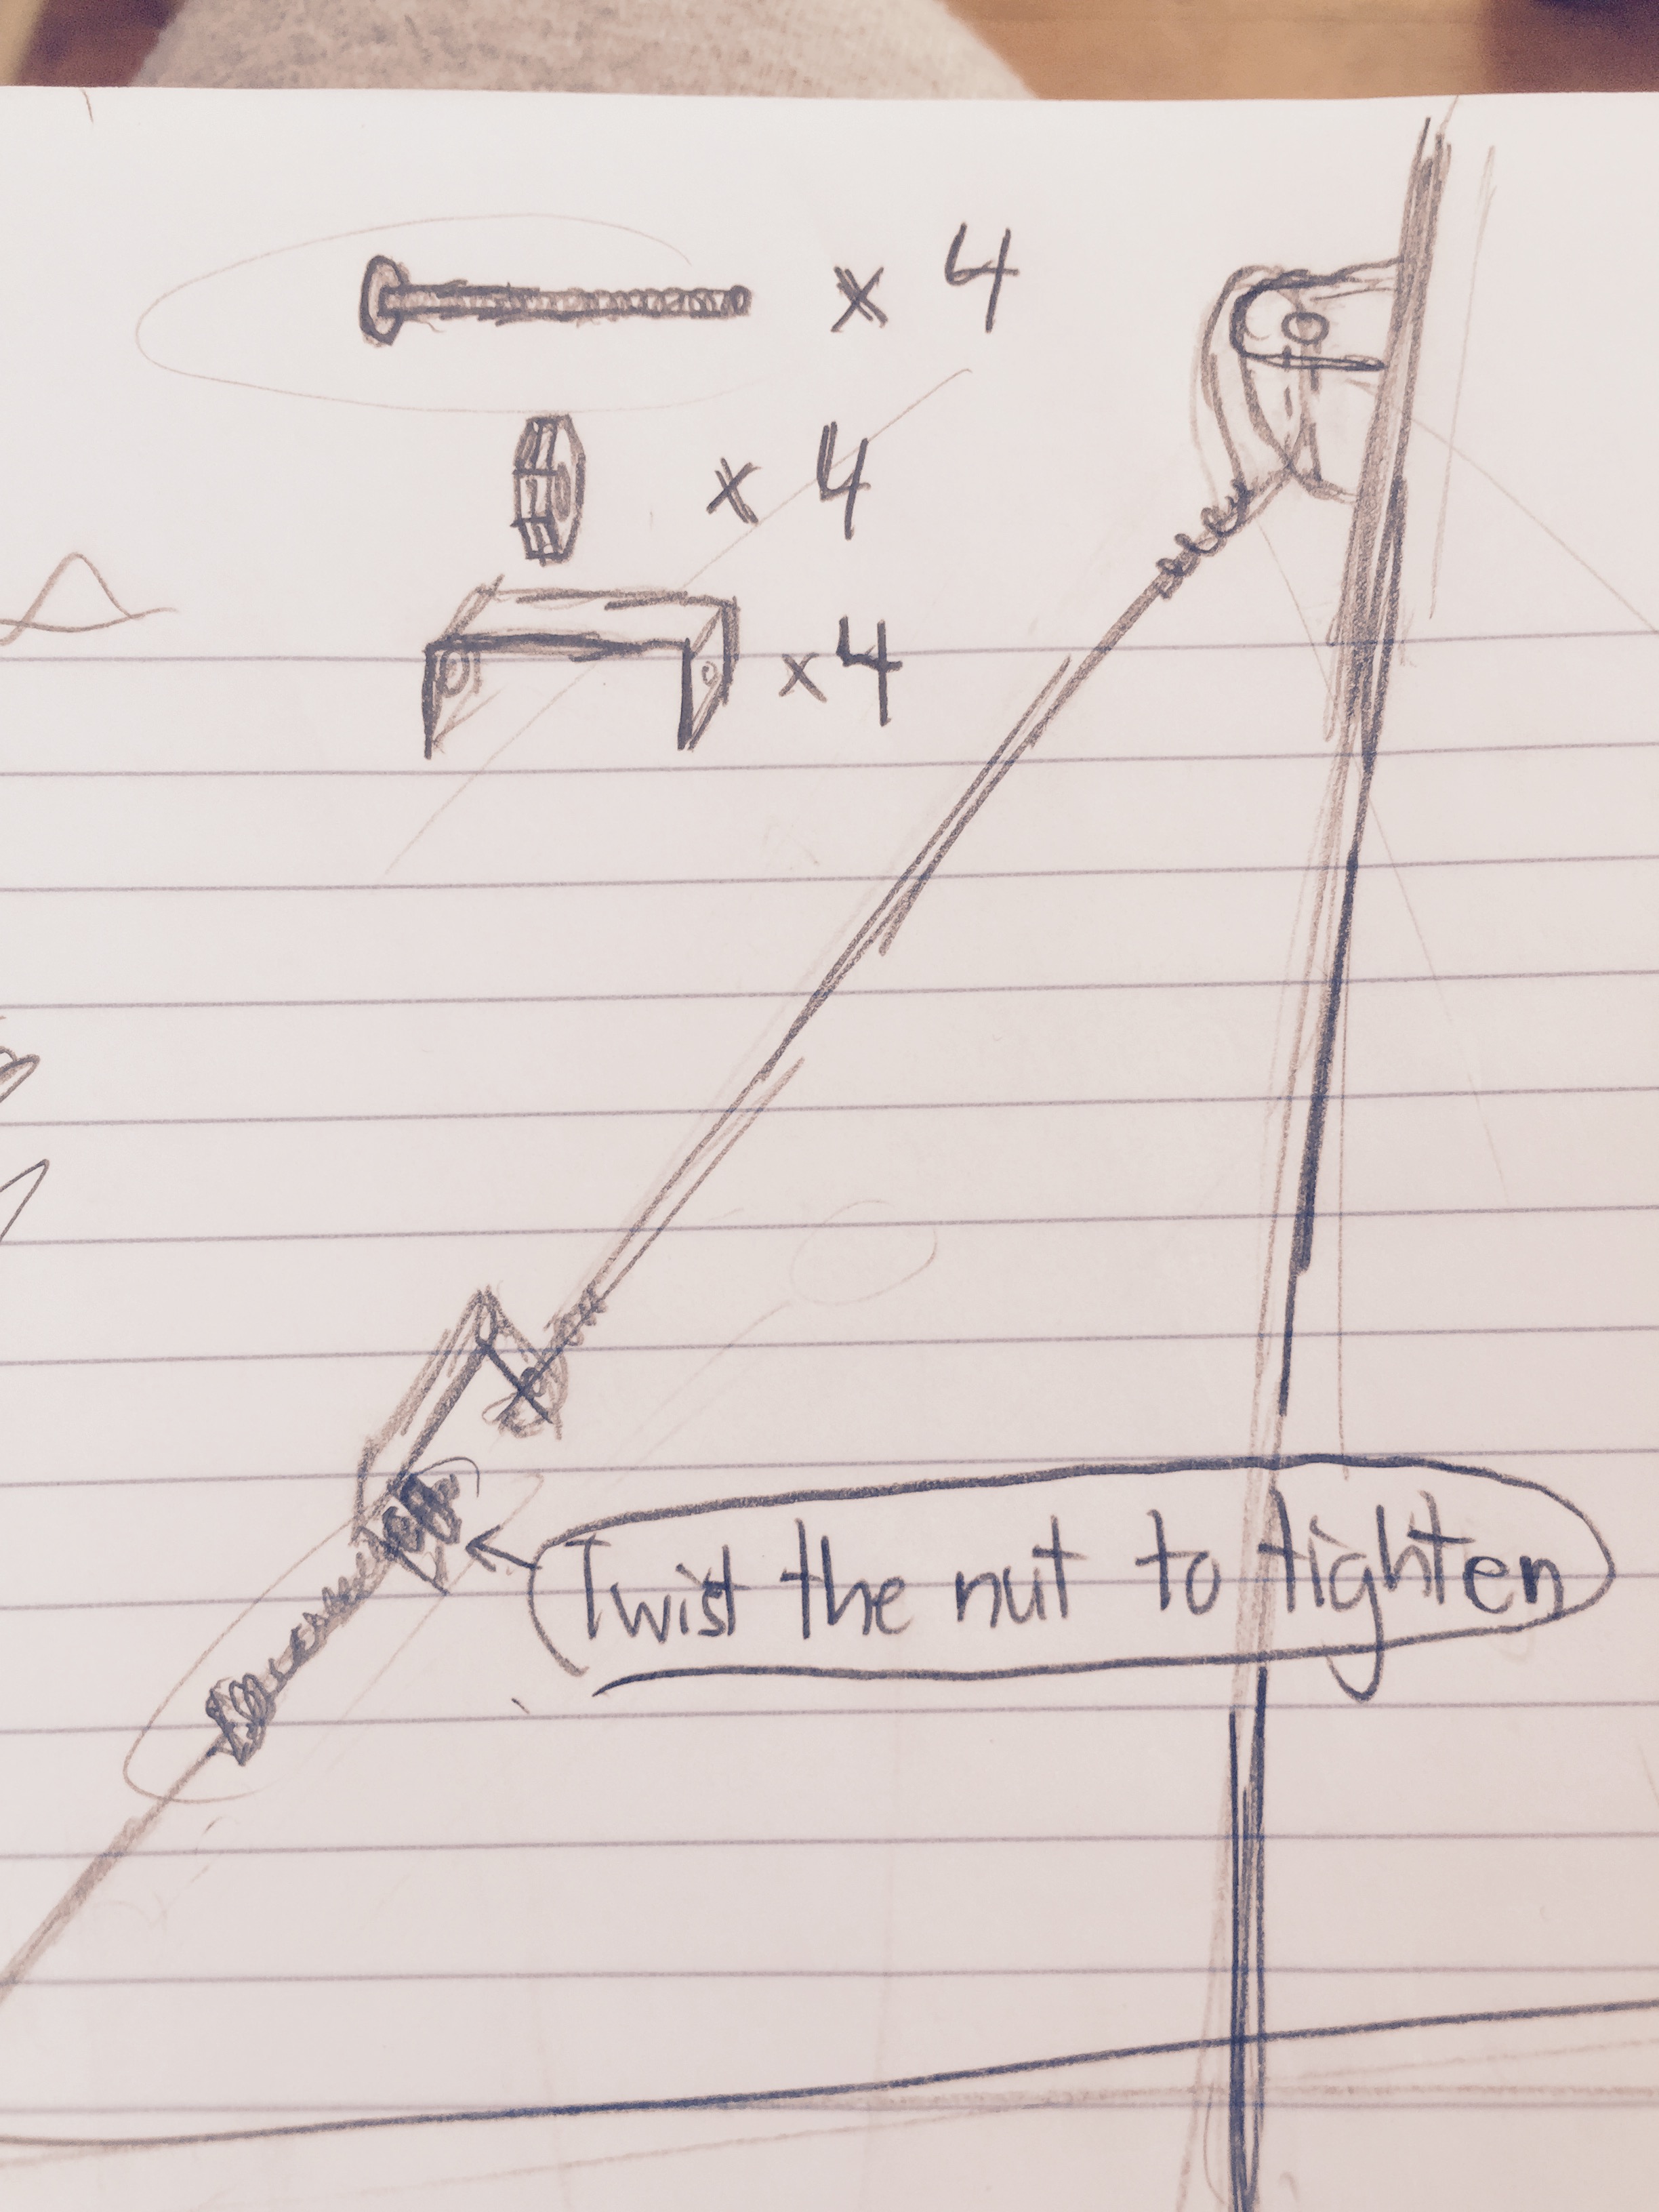 x 4
x 4
x 4
Twist the nut to tighten